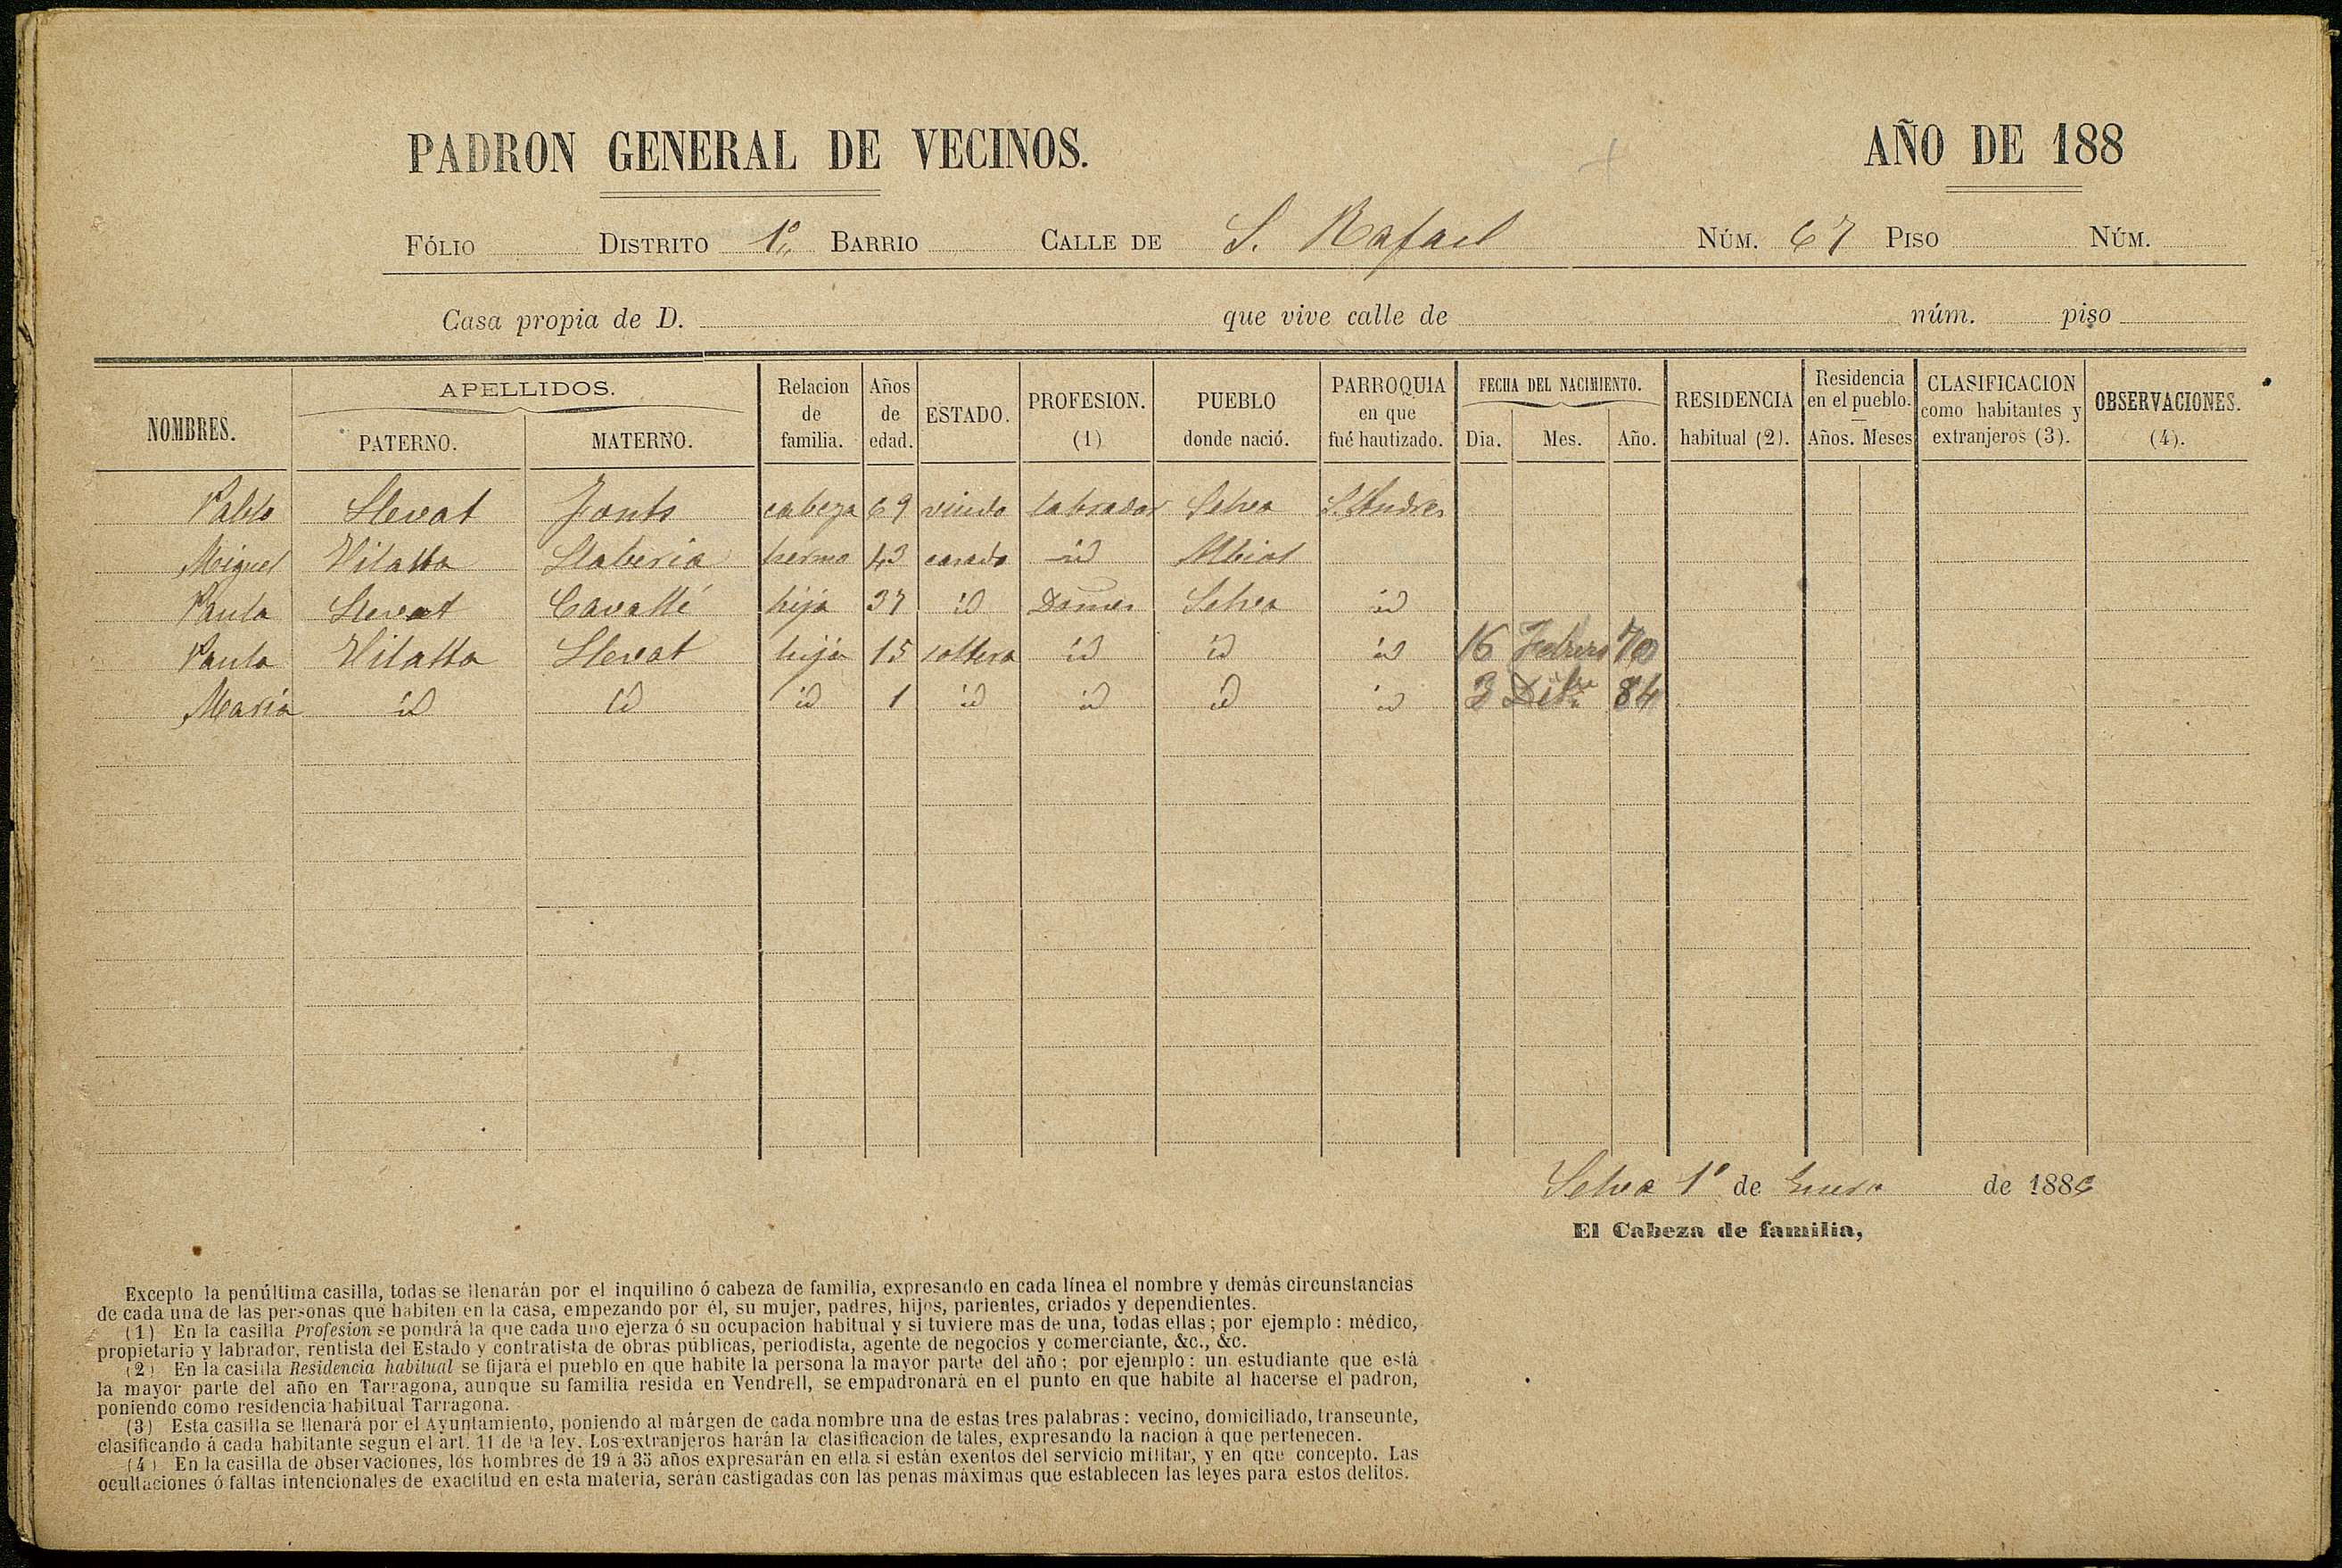 PADRON GENERAL DE VECINOS. AÑO DE 188
FÓLIO DISTRITO 1º BARRIO CALLE DE S. Rafael NÚM. 67 PISO NÚM.
Casa propia de D. que vive calle de núm. piso
NOMBRES. APELLIDOS. PATERNO. MATERNO. Relacion de familia. Años de edad. ESTADO. PROFESION. (1) PUEBLO donde nació. PARROQUIA en que fué bautizado. FECHA DEL NACIMIENTO. Dia. Mes. Año. RESIDENCIA habitual (2). Residencia en el pueblo. Años. Meses CLASIFICACION como habitantes y extranjeros (3). OBSERVACIONES. (4).
Pablo Llevat Fonts cabeza 69 viudo labrador Selva S. Andres
Miguel Vilalta Llaberia hermo 43 casado id Albiol
Paula Llevat Cavallé hija 37 id Domes Selva id
Paula Vilalta Llevat hija 15 soltera id id id 16 Febrero 70
Maria id id id 1 id id id id 3 Dibre 84
Selva 1º de Enero de 1886
El Cabeza de familia,
Excepto la penúltima casilla, todas se llenarán por el inquilino ó cabeza de familia, expresando en cada línea el nombre y demás circunstancias
de cada una de las personas que habiten en la casa, empezando por él, su mujer, padres, hijos, parientes, criados y dependientes.
(1) En la casilla Profesion se pondrá la que cada uno ejerza ó su ocupacion habitual y si tuviere mas de una, todas ellas; por ejemplo: médico,
propietario y labrador, rentista del Estado y contratista de obras públicas, periodista, agente de negocios y comerciante, &c., &c.
(2) En la casilla Residencia habitual se fijará el pueblo en que habite la persona la mayor parte del año; por ejemplo: un estudiante que está
la mayor parte del año en Tarragona, aunque su familia resida en Vendrell, se empadronará en el punto en que habite al hacerse el padron,
poniendo como residencia habitual Tarragona.
(3) Esta casilla se llenará por el Ayuntamiento, poniendo al márgen de cada nombre una de estas tres palabras: vecino, domiciliado, transeunte,
clasificando á cada habitante segun el art. 11 de la ley. Los extranjeros harán la clasificacion de tales, expresando la nacion á que pertenecen.
(4) En la casilla de observaciones, los hombres de 19 á 35 años expresarán en ella si están exentos del servicio militar, y en que concepto. Las
ocultaciones ó faltas intencionales de exactitud en esta materia, serán castigadas con las penas máximas que establecen las leyes para estos delitos.